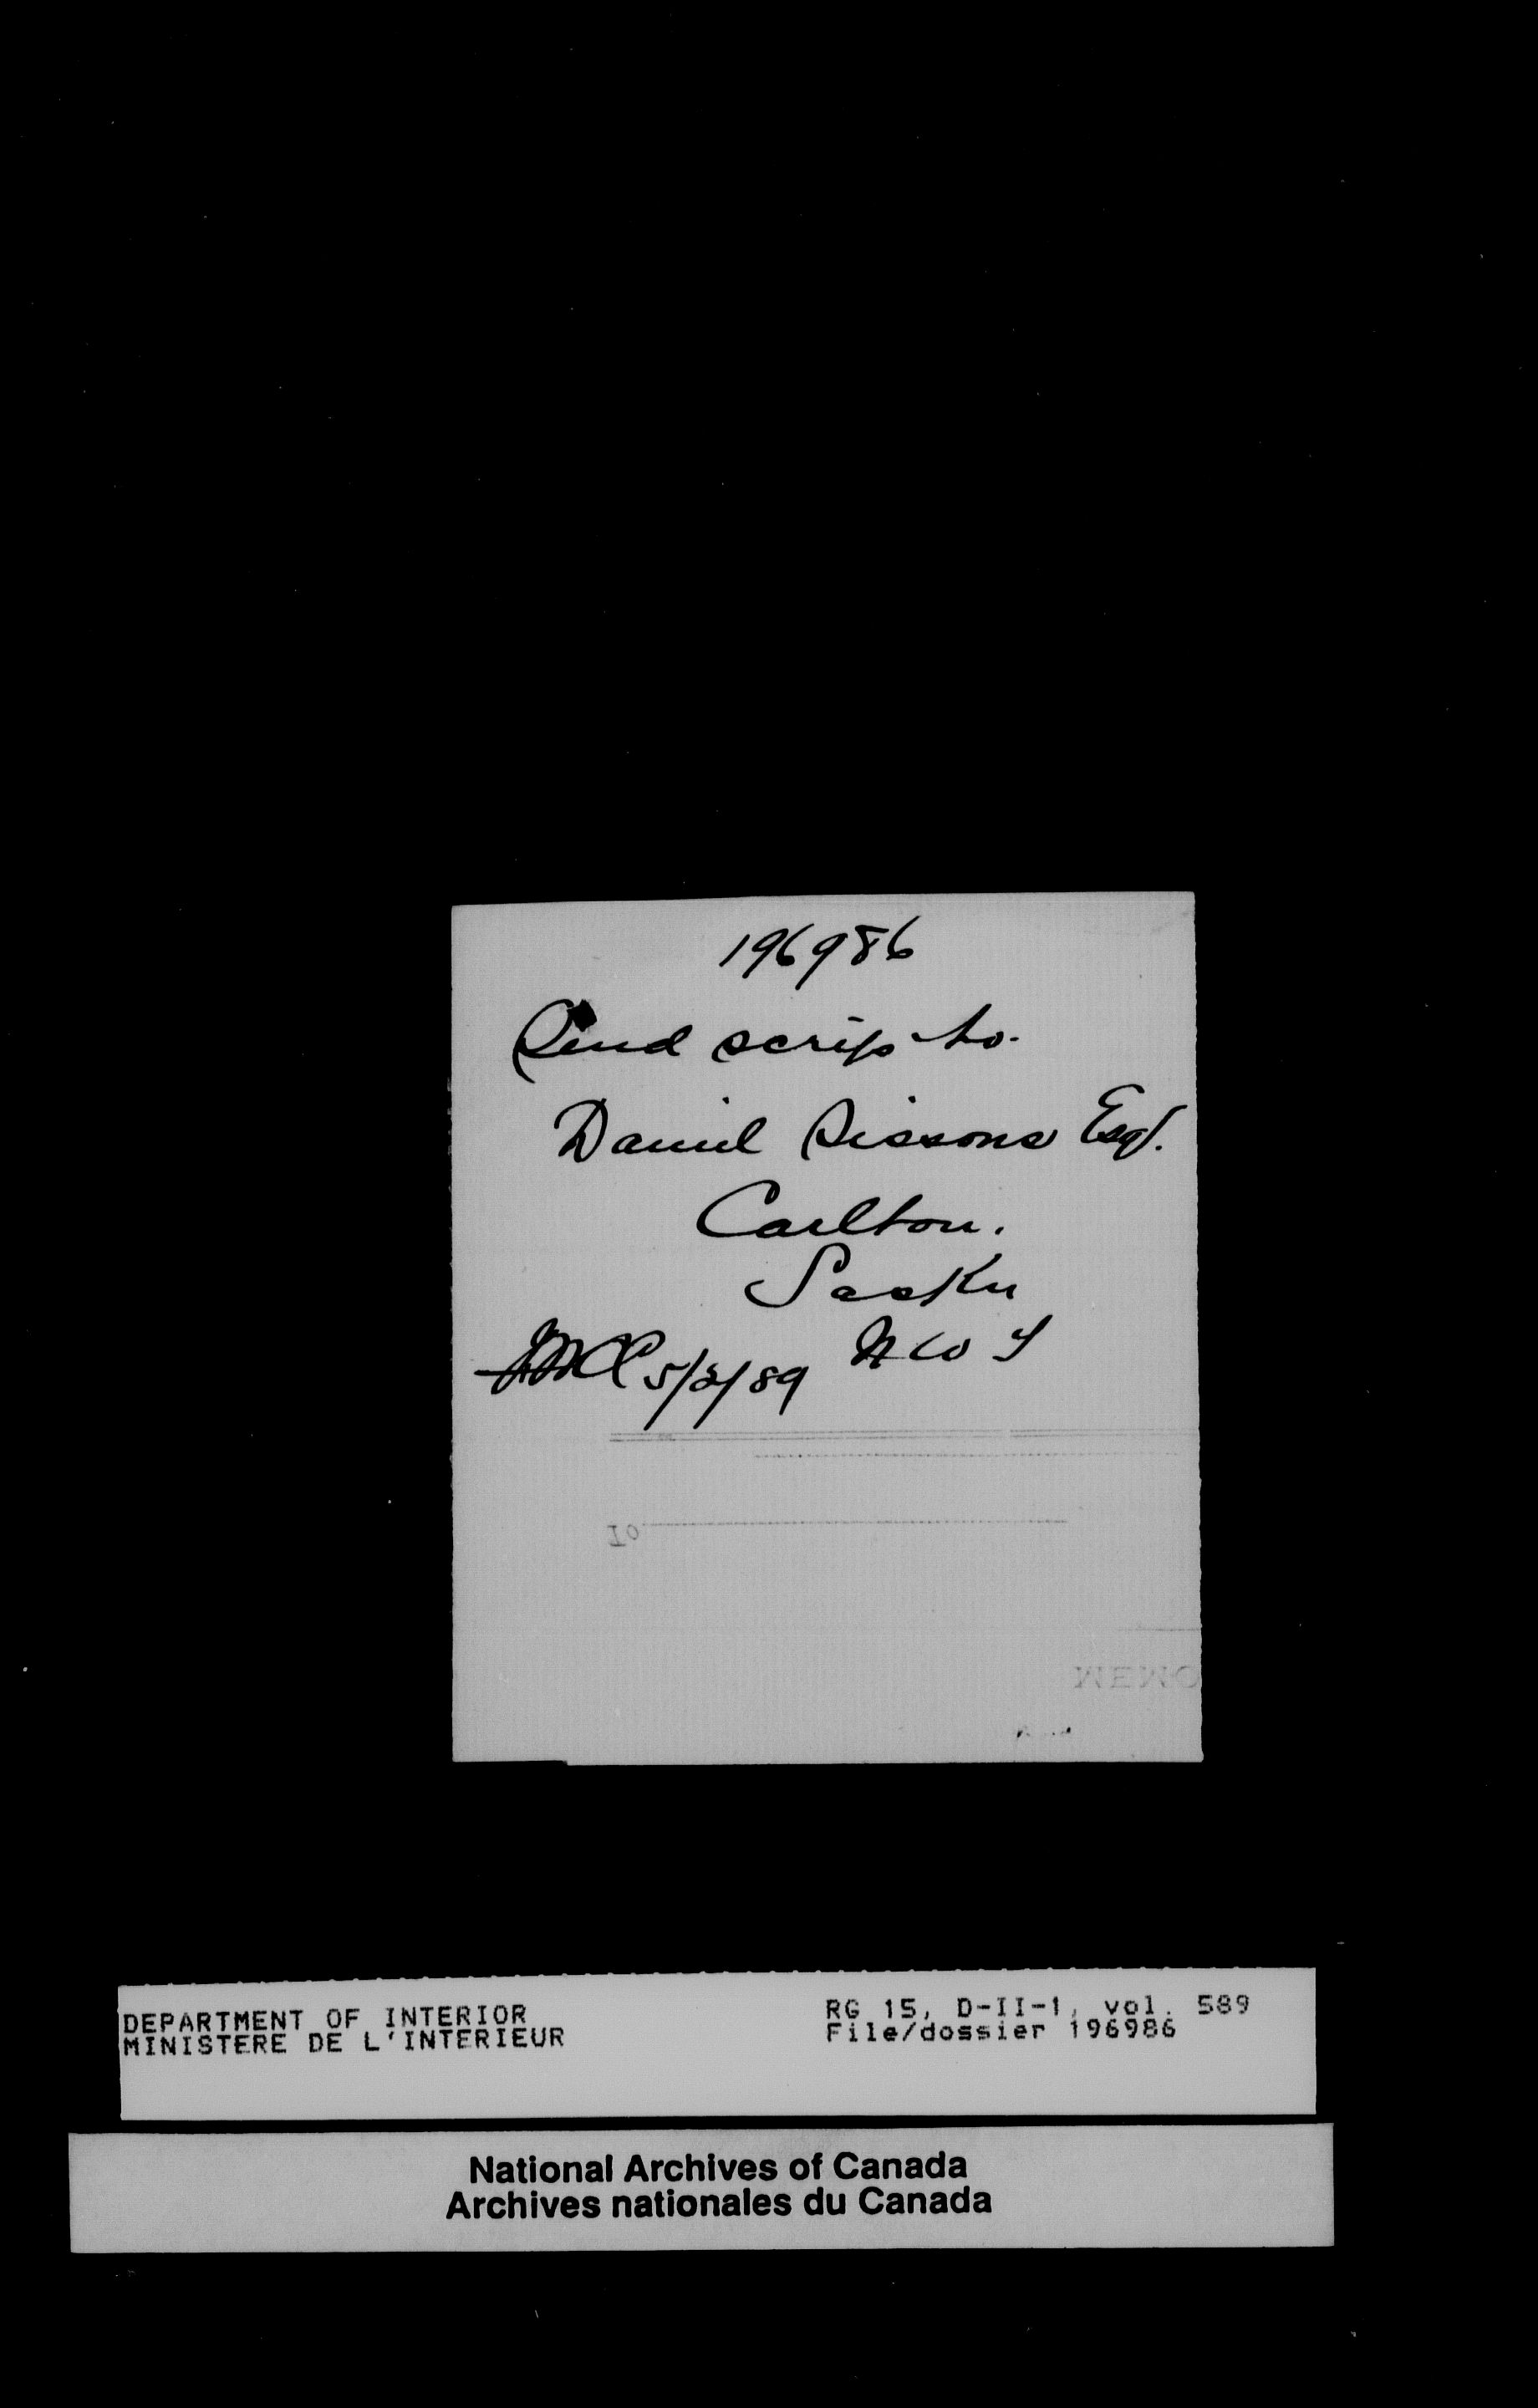 196986
Send scrip to.
Daniel Sissons Esq.
Carlton.
Saskn
N W T
5/3/89
To
MEMO
DEPARTMENT OF INTERIOR
MINISTERE DE L'INTERIEUR
RG 15, D-II-1, vol. 589
File/dossier 196986
National Archives of Canada
Archives nationales du Canada